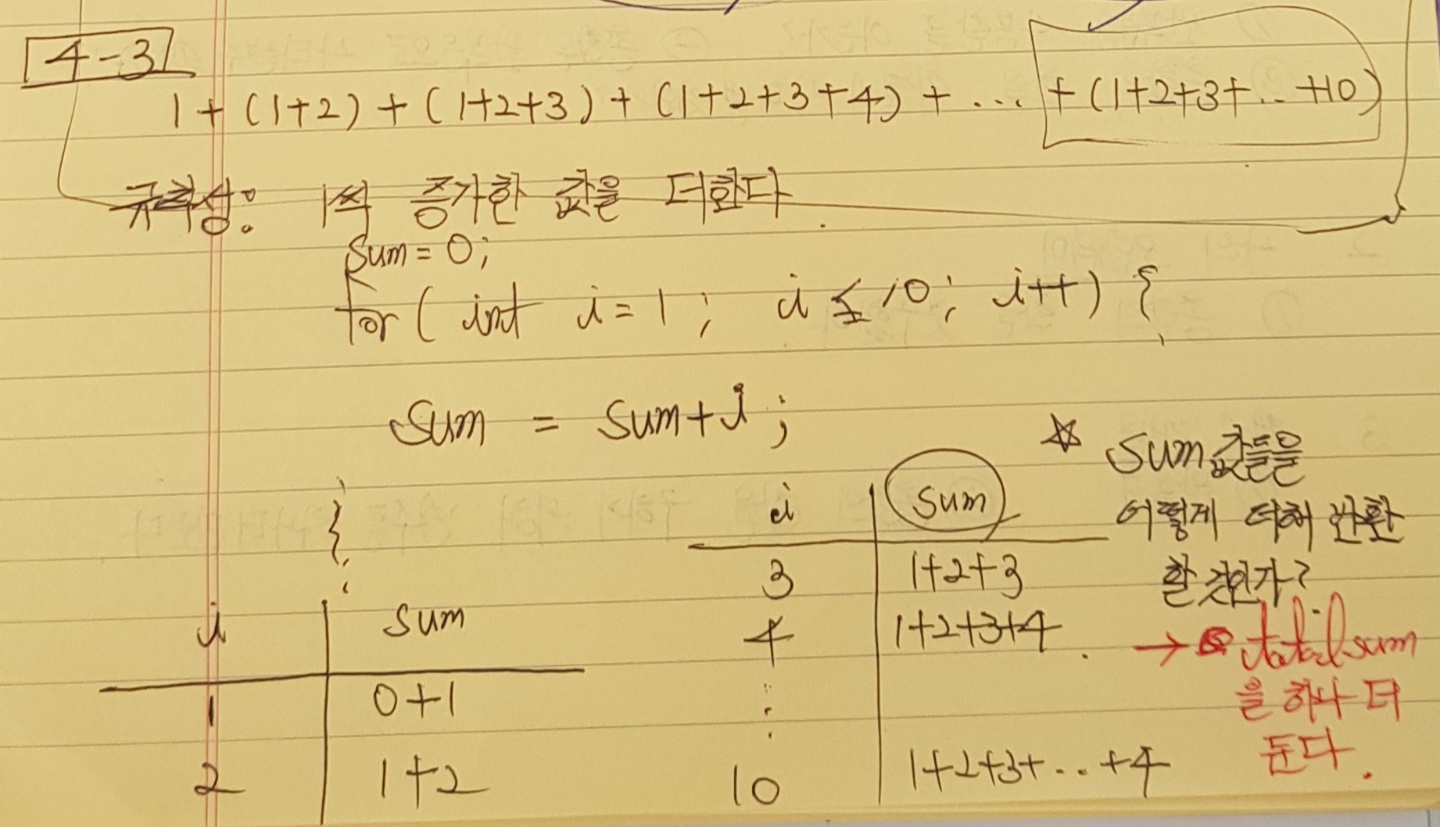 4-3
1 + (1+2) + (1+2+3) + (1+2+3+4) + ... + (1+2+3+..+10)
규칙성: 1씩 증가한 값을 더한다.
sum = 0;
for( int i = 1 ; i ≤ 10; i++) {
sum = sum+i ;
}
i | sum
1 | 0+1
2 | 1+2
i | sum
3 | 1+2+3
4 | 1+2+3+4.
⋮
10 | 1+2+3+...+4
☆ sum값들을
어떻게 더해 반환
할 것인가?
→ total sum
을 하나 더
둔다.